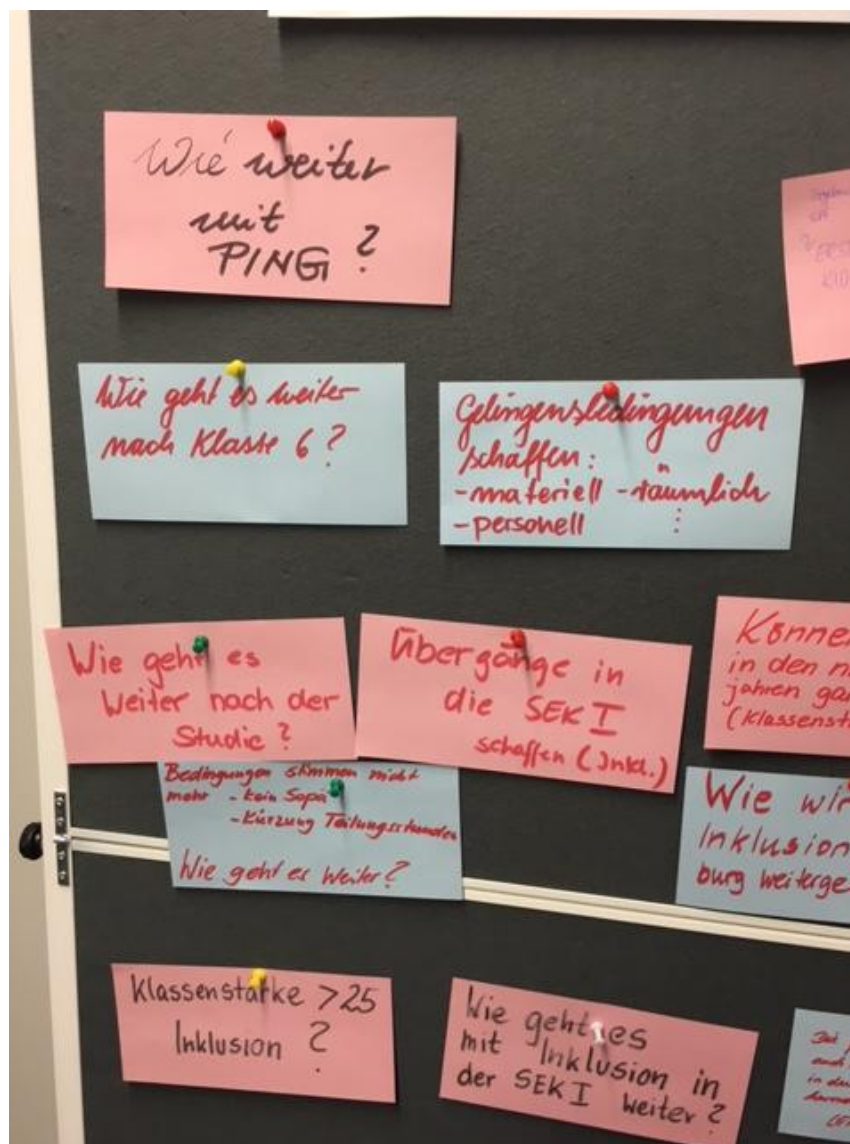 Wie weiter
mit
PING?
Wie geht es weiter
nach Klasse 6?
Gelingensbedingungen
schaffen:
- materiell - räumlich
- personell ⋮
Wie geht es
weiter nach der
Studie?
Übergänge in
die SEK I
schaffen (Inkl.)
Können
in den
(Klassenst
Bedingungen stimmen nicht
mehr - kein Sopä
- Kürzung Teilungsstunden
Wie geht es weiter?
Wie wir
Inklusion
burg weiterge
Klassenstärke >25
Inklusion?
Wie geht es
mit Inklusion in
der SEK I weiter?